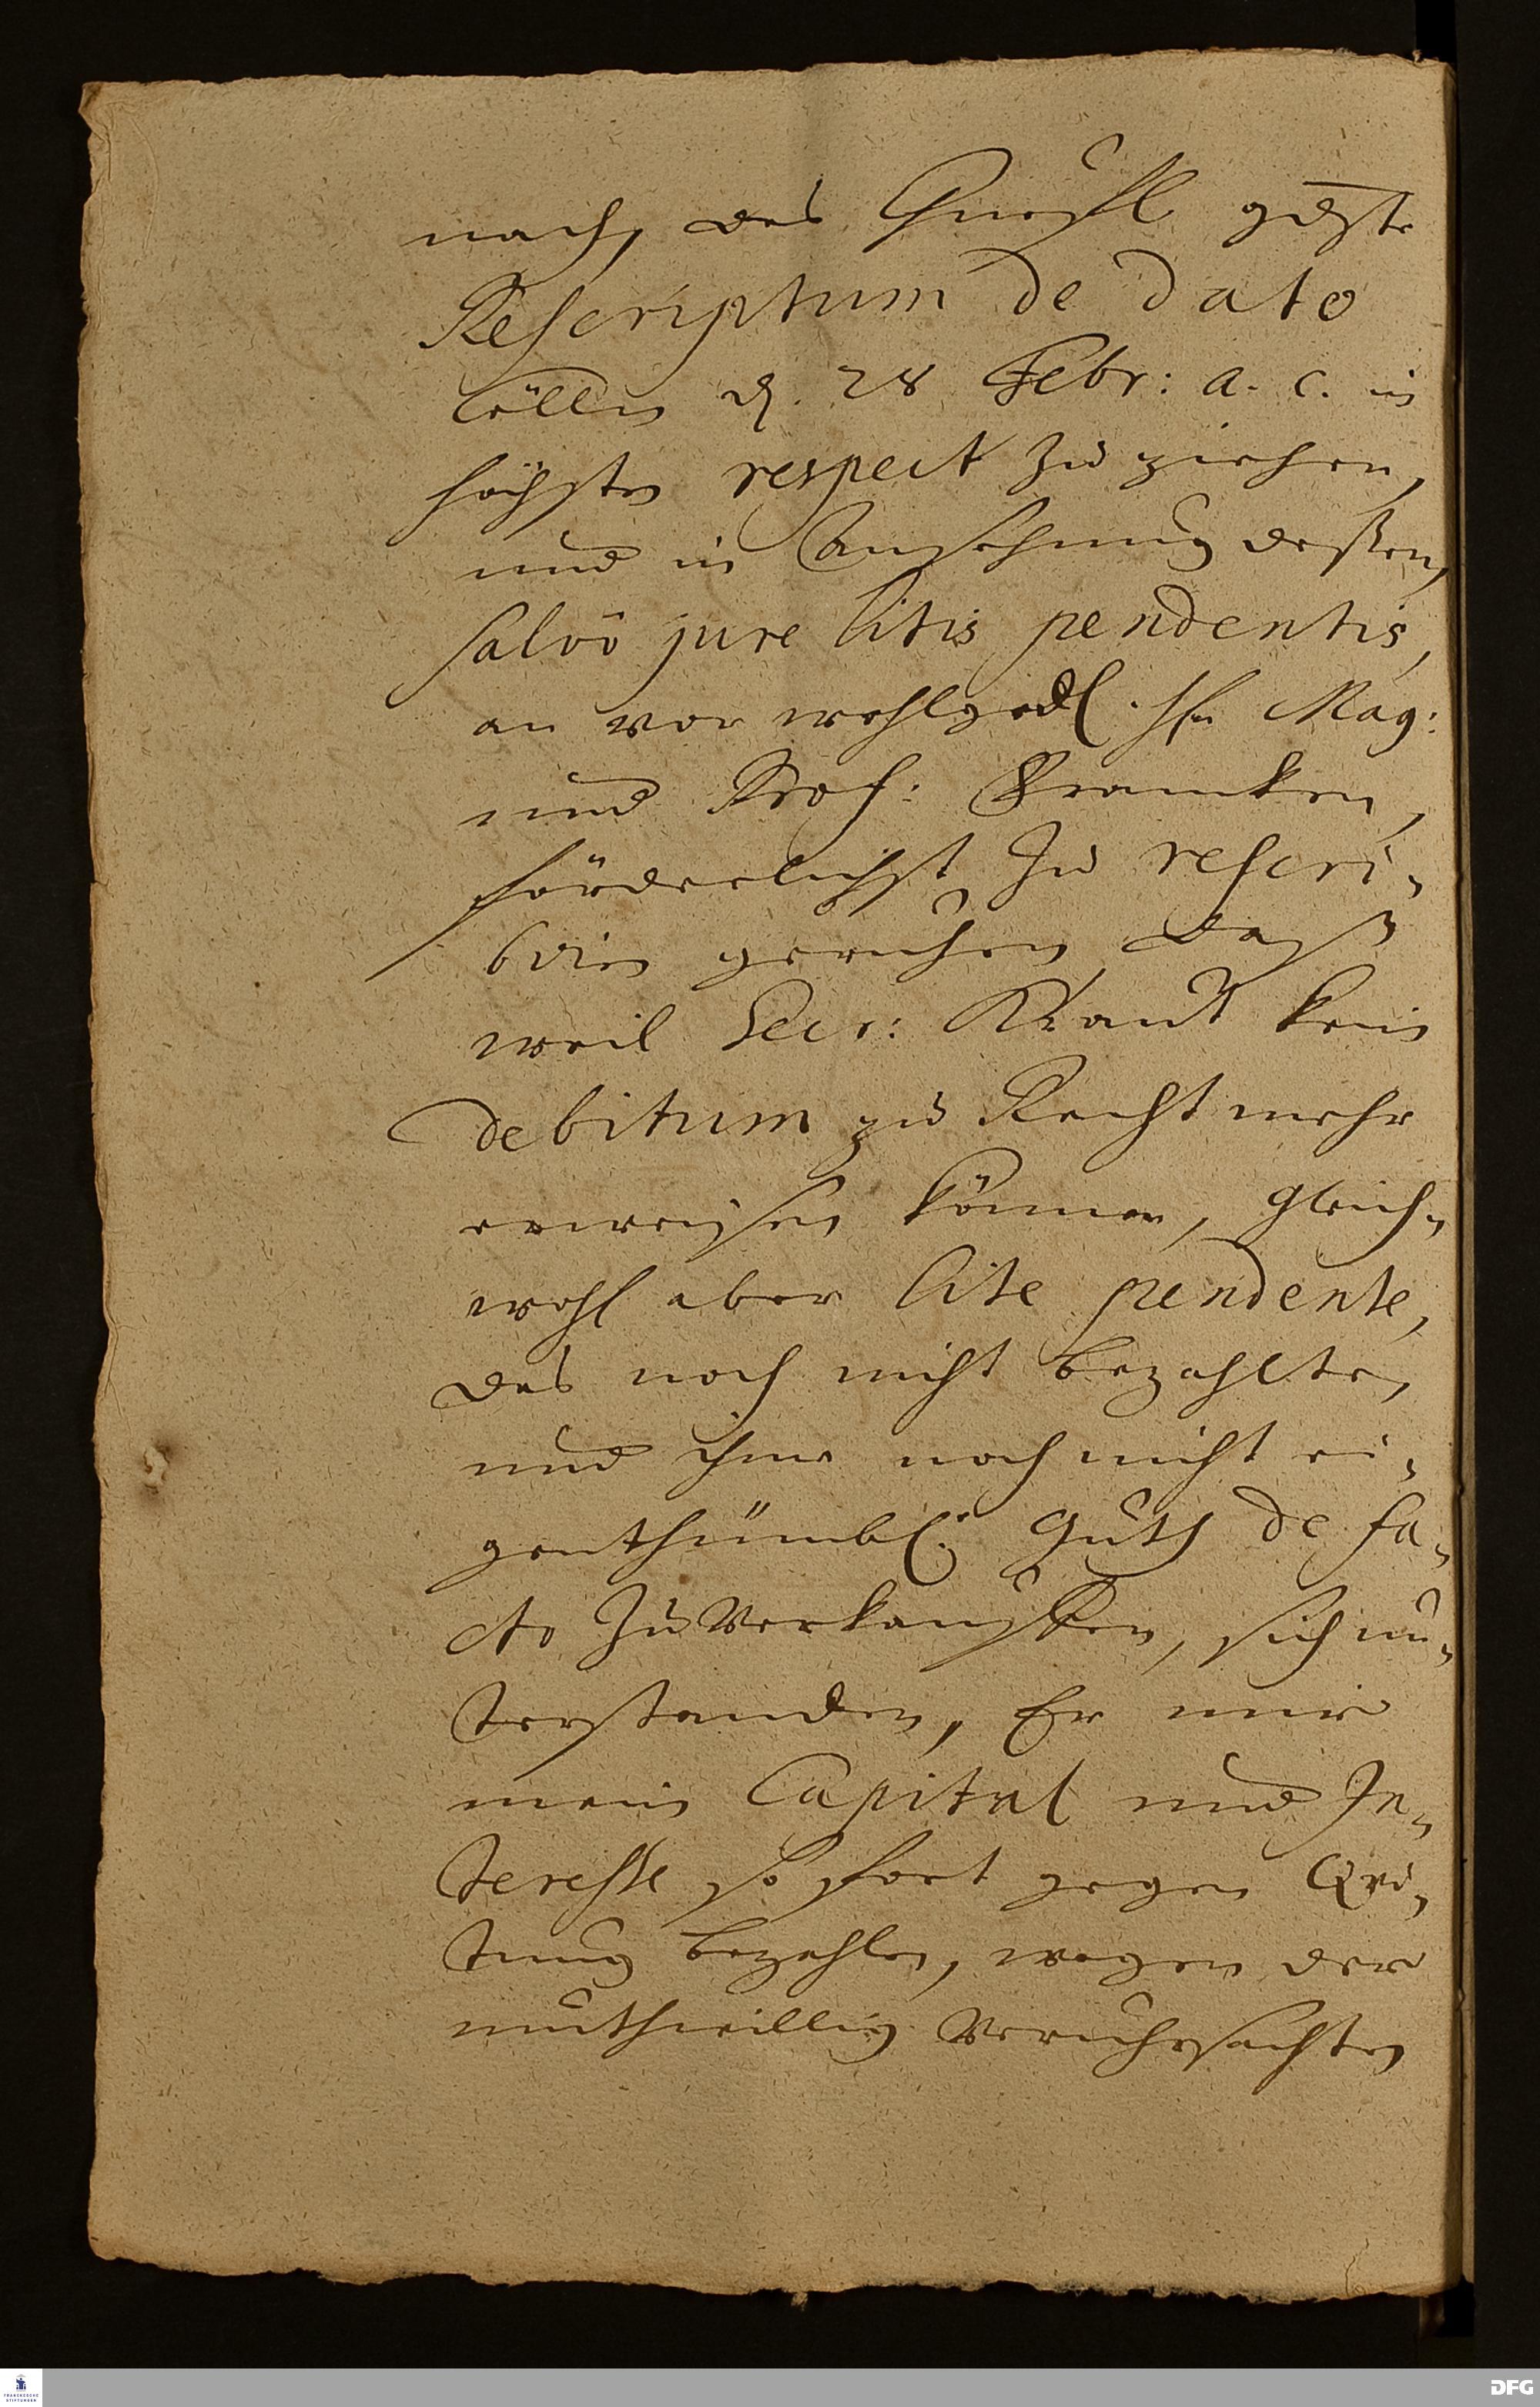 nach, das Churfl gdste
Rescriptum de dato
Cölln d. 28 Febr: a. c. in
höchsten respect zu ziehen,
und in Ansehung deßen,
salvo jure litis pendentis,
an vor wohlged. Hn Mag:
und Prof: Francken,
förderlichst zu rescri-
biren geruhen, daß
weil Secr: Kraut kein
debitum zu Recht mehr
erweisen können, gleich-
wohl aber lite pendente,
das noch nicht bezahlte,
und ihme noch nicht ei-
genthümbl: Guth de fa-
cto zu verkauffen, sich un-
terstanden, Er mir
mein Capital und In-
teresse so fort gegen Qvi-
tung bezahlen, wegen der
muthwillig veruhrsachten
FRANCKESCHE
STIFTUNGEN
DFG